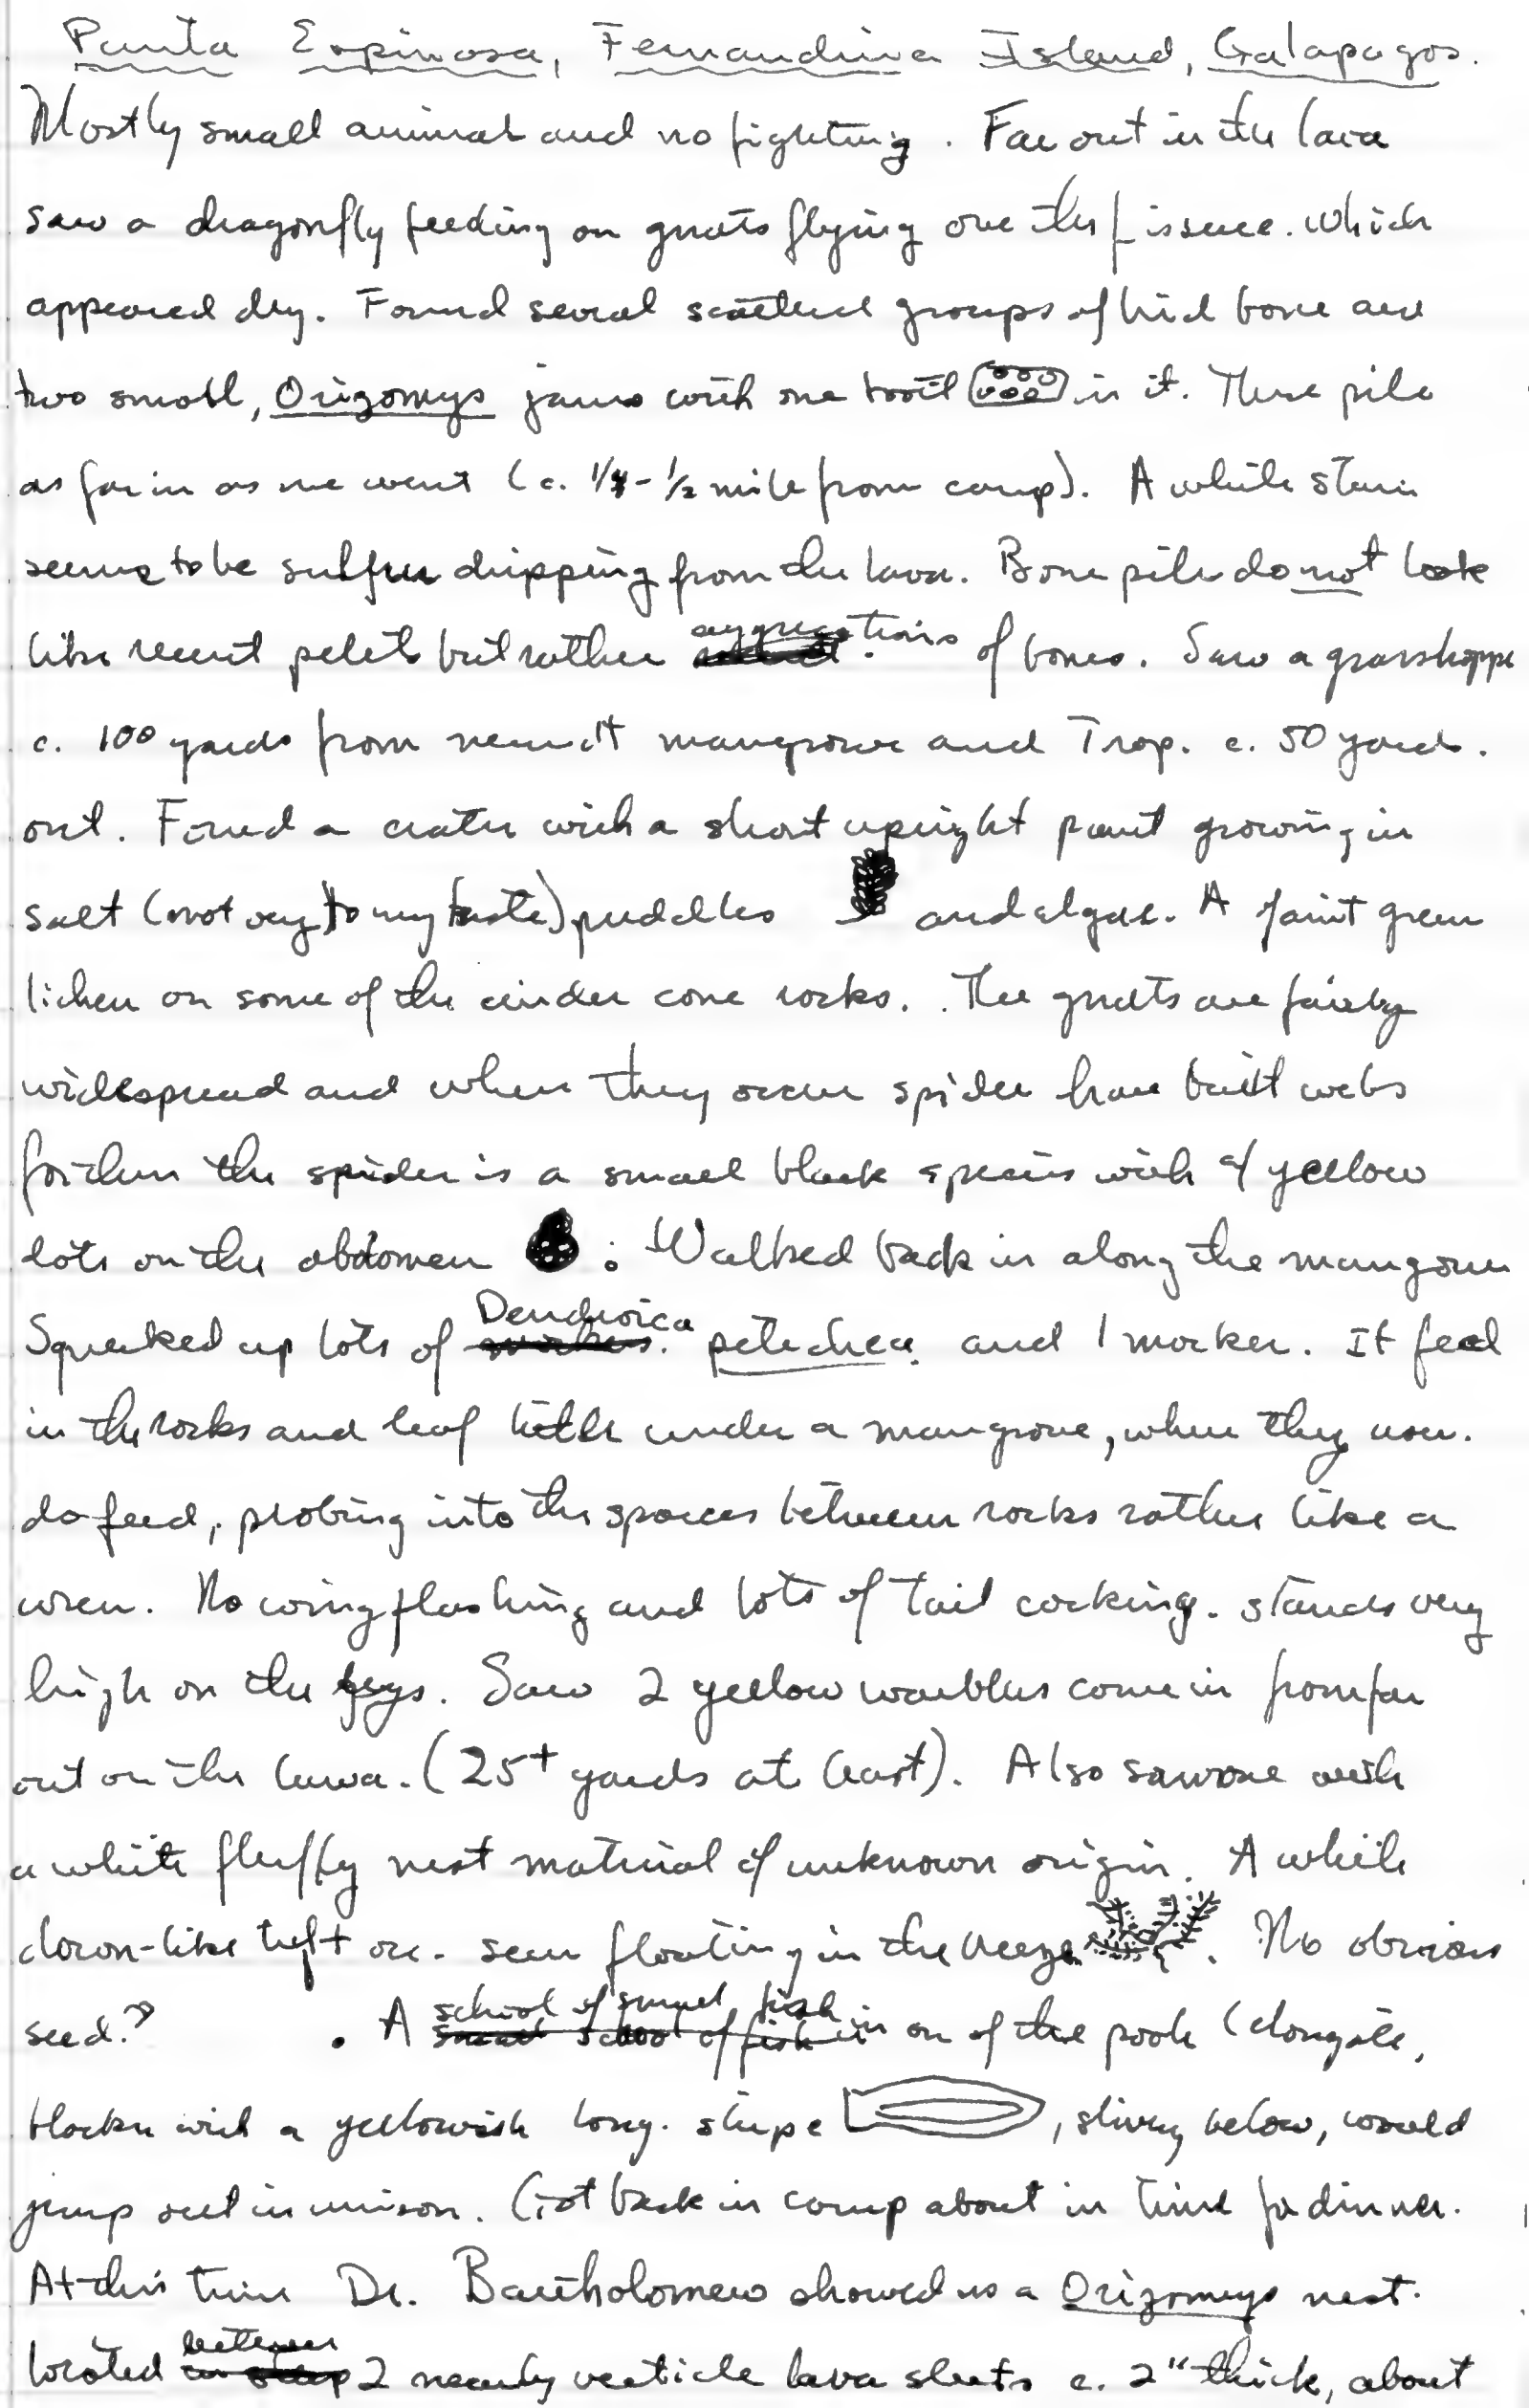 Punta Espinosa, Fernandina Island, Galapagos.
Mostly small animals and no fighting. Far out in the lava
saw a dragonfly feeding on gnats flying over the fissure. Which
appeared dry. Found several scattered groups of bird bone and
two small, Origomys jaws with one tooth in it. These pile
as far in as we went (c. 1/4 - 1/2 mile from camp). A white stain
seems to be sulfur dripping from the lava. Bone piles do not look
like recent pelets but rather aggregations of bones. Saw a grasshopper
c. 100 yards from nearest mangrove and Trop. c. 50 yards.
out. Found a crater with a short upright plant growing in
salt (not very to my taste) puddles and algae. A faint green
lichen on some of the cinder cone rocks. The gnats are fairly
widespread and where they occur spider have built webs
for them the spider is a small black species with yellow
dots on the abdomen. Walked back in along the mangrove
Squeaked up lots of Dendroica petechea and 1 mocker. It feed
in the rocks and leaf litter under a mangrove, where they usu.
do feed, probing into the spaces between rocks rather like a
wren. No wing flashing and lots of tail cocking. stands very
high on the legs. Saw 2 yellow warblers come in from far
out on the lava. (25+ yards at least). Also saw one with
a white fluffy nest material of unknown origin. A white
down-like tuft occ. seen floating in the breeze. No obvious
seed.?
A school of small fish in on of the pools (elongate,
blackn with a yellowish long. stripe, slivery below, would
jump out in unison. Got back in camp about in time for dinner.
At this time Dr. Bartholomew showed us a Orizomys nest.
located between 2 nearly verticle lava sheets c. 2" thick, about